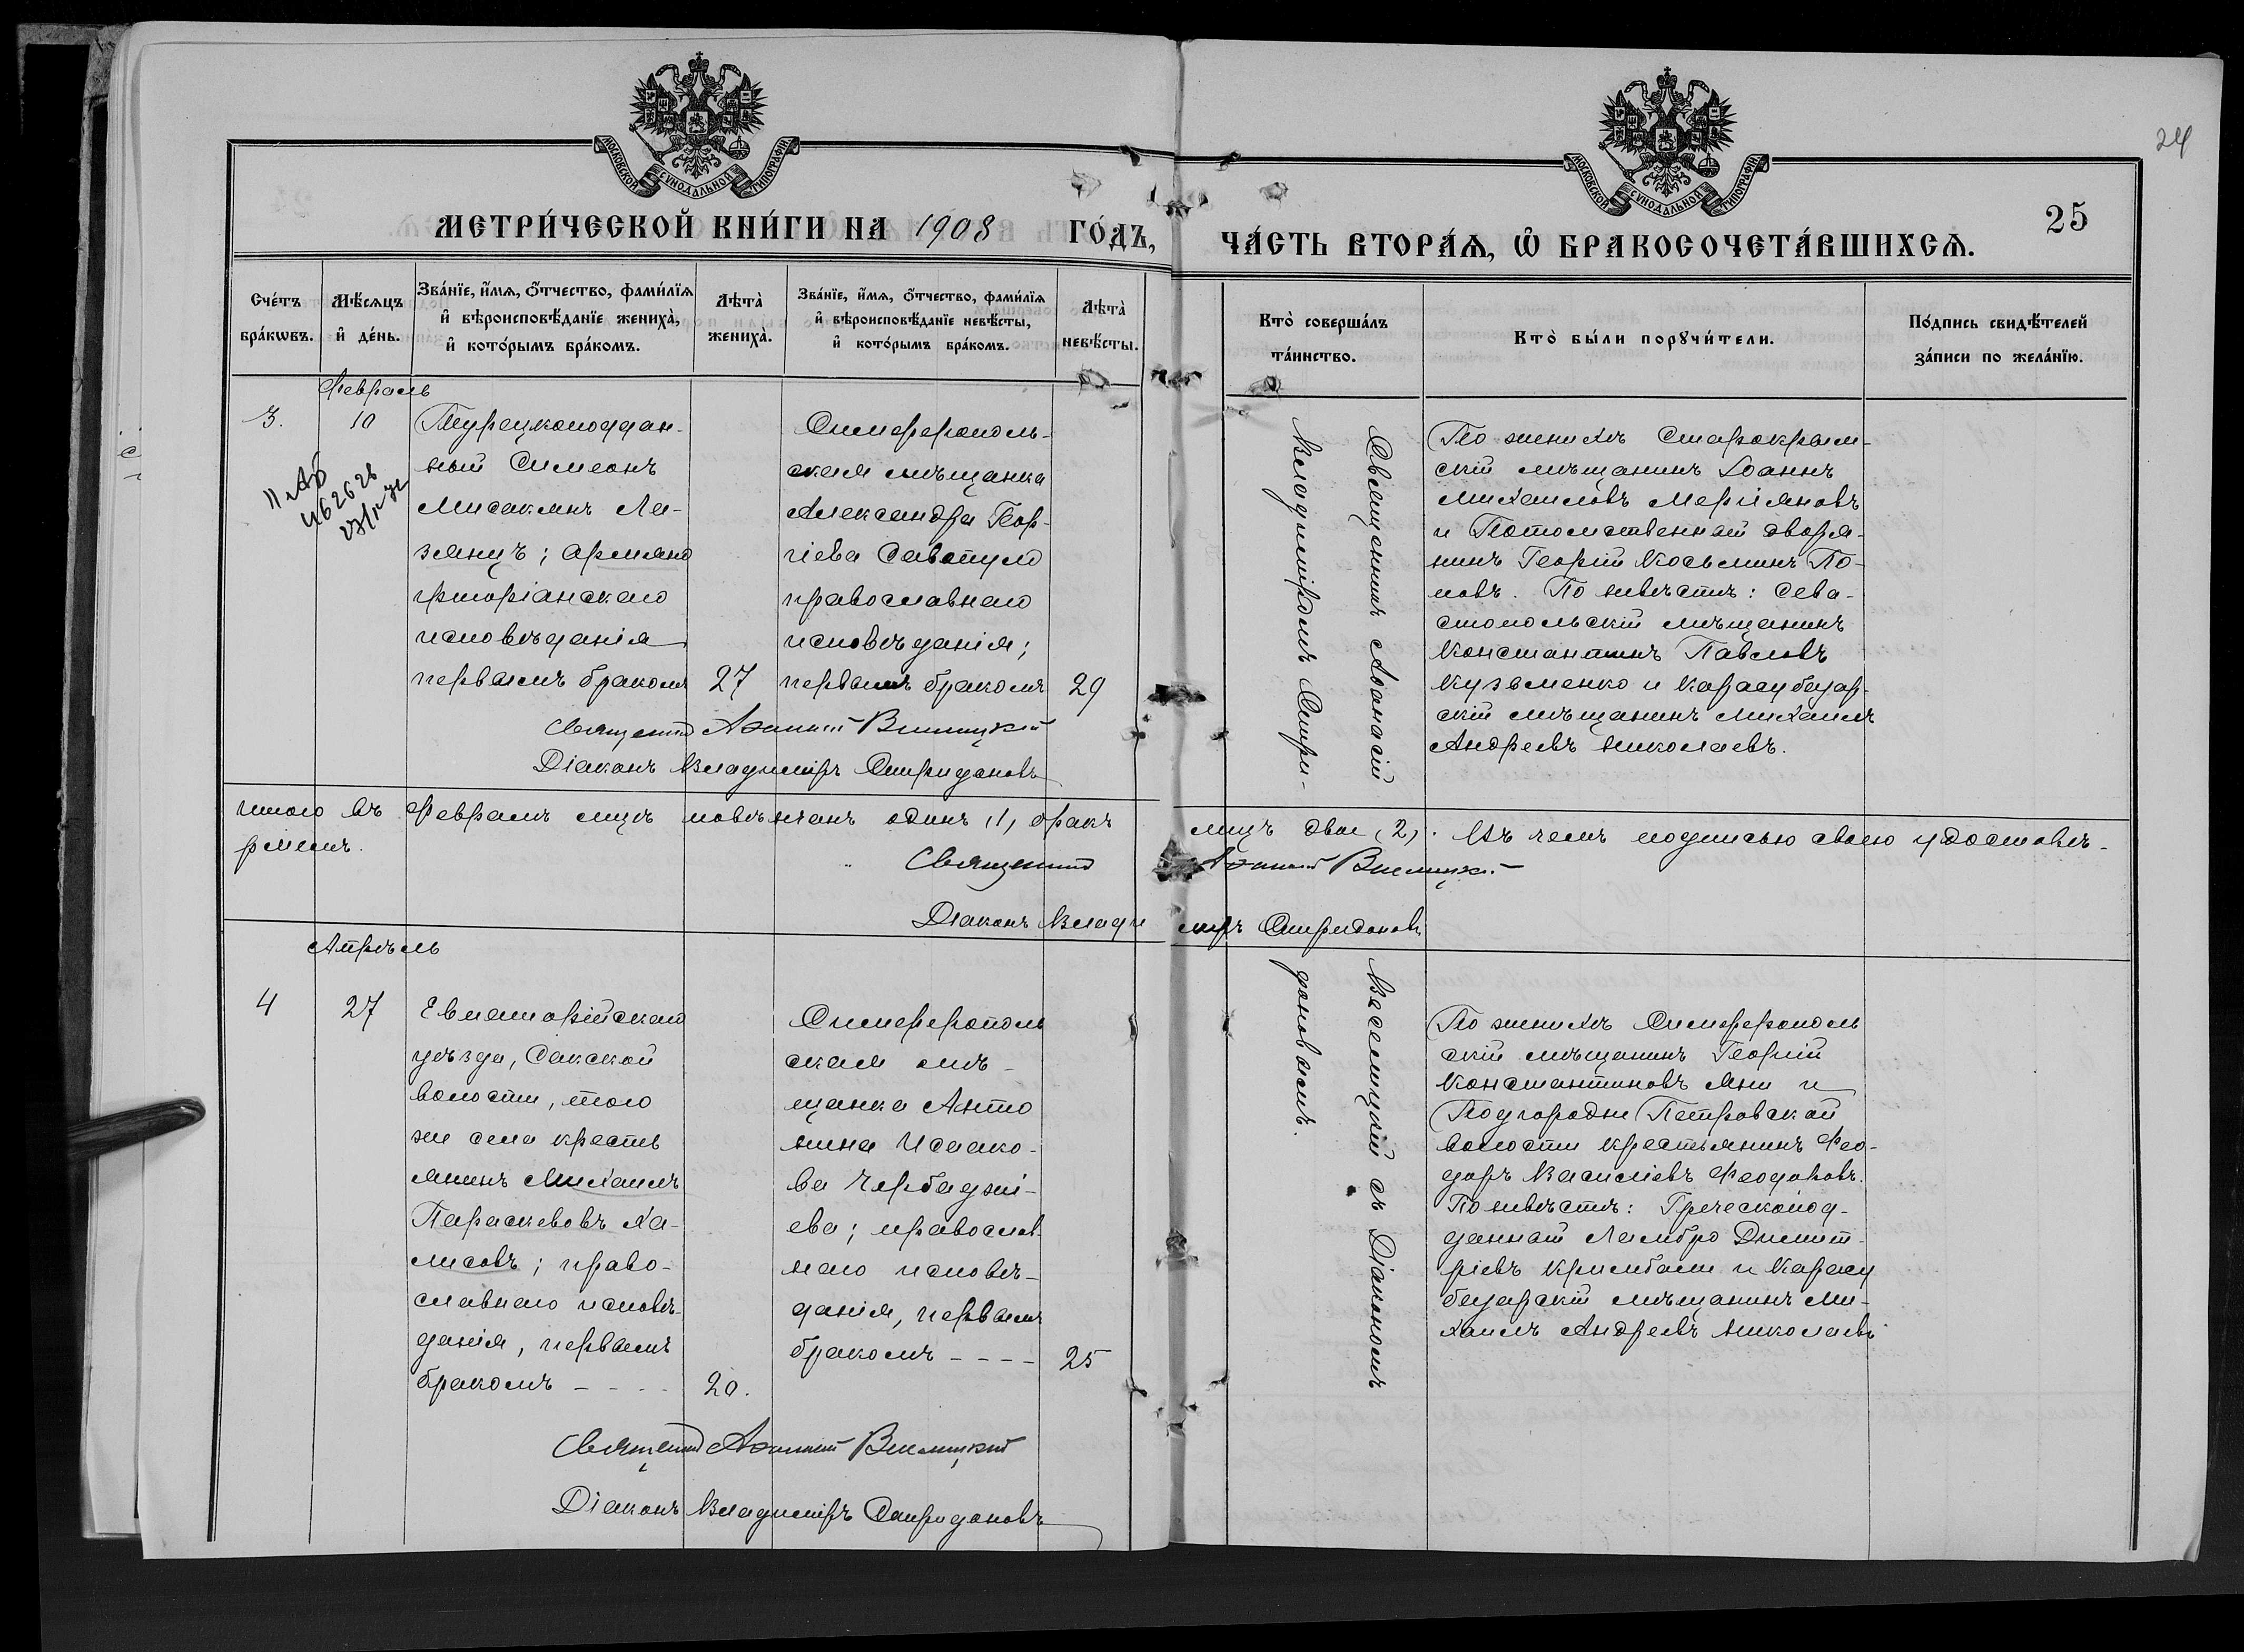 МОСКОВСКОЙ СѴНОДАЛЬНОЙ ТИПОГРАФІИ
МОСКОВСКОЙ СѴНОДАЛЬНОЙ ТИПОГРАФІИ
24
25
МЕТРИ́ЧЕСКОЙ КНИ́ГИ НА 1908 ГО́ДЪ,
ЧА́СТЬ ВТОРА́Ѧ, Ѡ҆ БРАКОСОЧЕТА́ВШИХСѦ.
Сче́тъ
бра́кѡвъ.
Мѣ́сѧцъ
и҆ де́нь.
Зва́нїе, и҆́мѧ, ѻ҆́тчество, фами́лїѧ
и҆ вѣроисповѣ́данїе жениха̀,
и҆ кото́рымъ бра́комъ.
Лѣта̀
жениха̀.
Зва́нїе, и҆́мѧ, ѻ҆́тчество, фами́лїѧ
и҆ вѣроисповѣ́данїе невѣ́сты,
и҆ кото́рымъ бра́комъ.
Лѣта̀
невѣ́сты.
Кто̀ соверша́лъ
та́инство.
Кто̀ бы́ли порꙋчи́тели.
По́дпись свидѣ́телей
за́писи по жела́нїю.
Февраль
3.
10
Турецкоподдан-
ный Симеонъ
Мисакянъ Ла-
зянцъ; армяно
григоріанскаго
исповѣданія
первымъ бракомъ
27
Симферополь-
ская мѣщанка
Александра Геор-
гіева Савопуло
православнаго
исповѣданія;
первымъ бракомъ
29
Священникъ Аѳанасій
Владиміромъ Спири-
По женихѣ Старокрым-
скій мѣщанинъ Іоаннъ
Михаиловъ Маріяновъ
и Потомственный дворя-
нинъ Георгій Косьминъ По-
повъ. По невѣстѣ: Сева-
стопольскій мѣщанинъ
Константинъ Павловъ
Кузьменко и Карасубазар-
скій мѣщанинъ Михаилъ
Андреевъ Николаевъ.
Священникъ Аѳанасій
Діаконъ Владиміръ Спиридоновъ
Итого въ Февралѣ мцѣ повѣнчанъ одинъ (1) бракъ
лицъ двое (2). Въ чемъ подписью своею удостовѣ-
ряемъ.
Священникъ Аѳанасій
Діаконъ Влади
міръ Спиридоновъ
Апрѣль
4
27
Евпаторійскаго
уѣзда, Сакской
волости, того
же села кресть
янинъ Михаилъ
Параскевовъ Ха-
лисовъ; право-
славнаго исповѣ-
данія, первымъ
бракомъ - - - -
20.
Симферополь
ская мѣ-
щанка Анто
нина Исаако-
ва Чербаджі-
ева; православ-
наго исповѣ-
данія, первымъ
бракомъ - - - -
25
съ Діакономъ
доновымъ.
По женихѣ Симферополь
скій мѣщанинъ Георгій
Константиновъ Яни и
Подгородне Петровской
волости крестьянинъ Фео-
доръ Василіевъ Феодоровъ.
По невѣстѣ: Греческопод-
данный Ламбро Димит-
ріевъ Кримбали и Карасу
базарскій мѣщанинъ Ми-
хаилъ Андреевъ Николаевъ
Священникъ Аѳанасій
Діаконъ Владиміръ Спиридоновъ